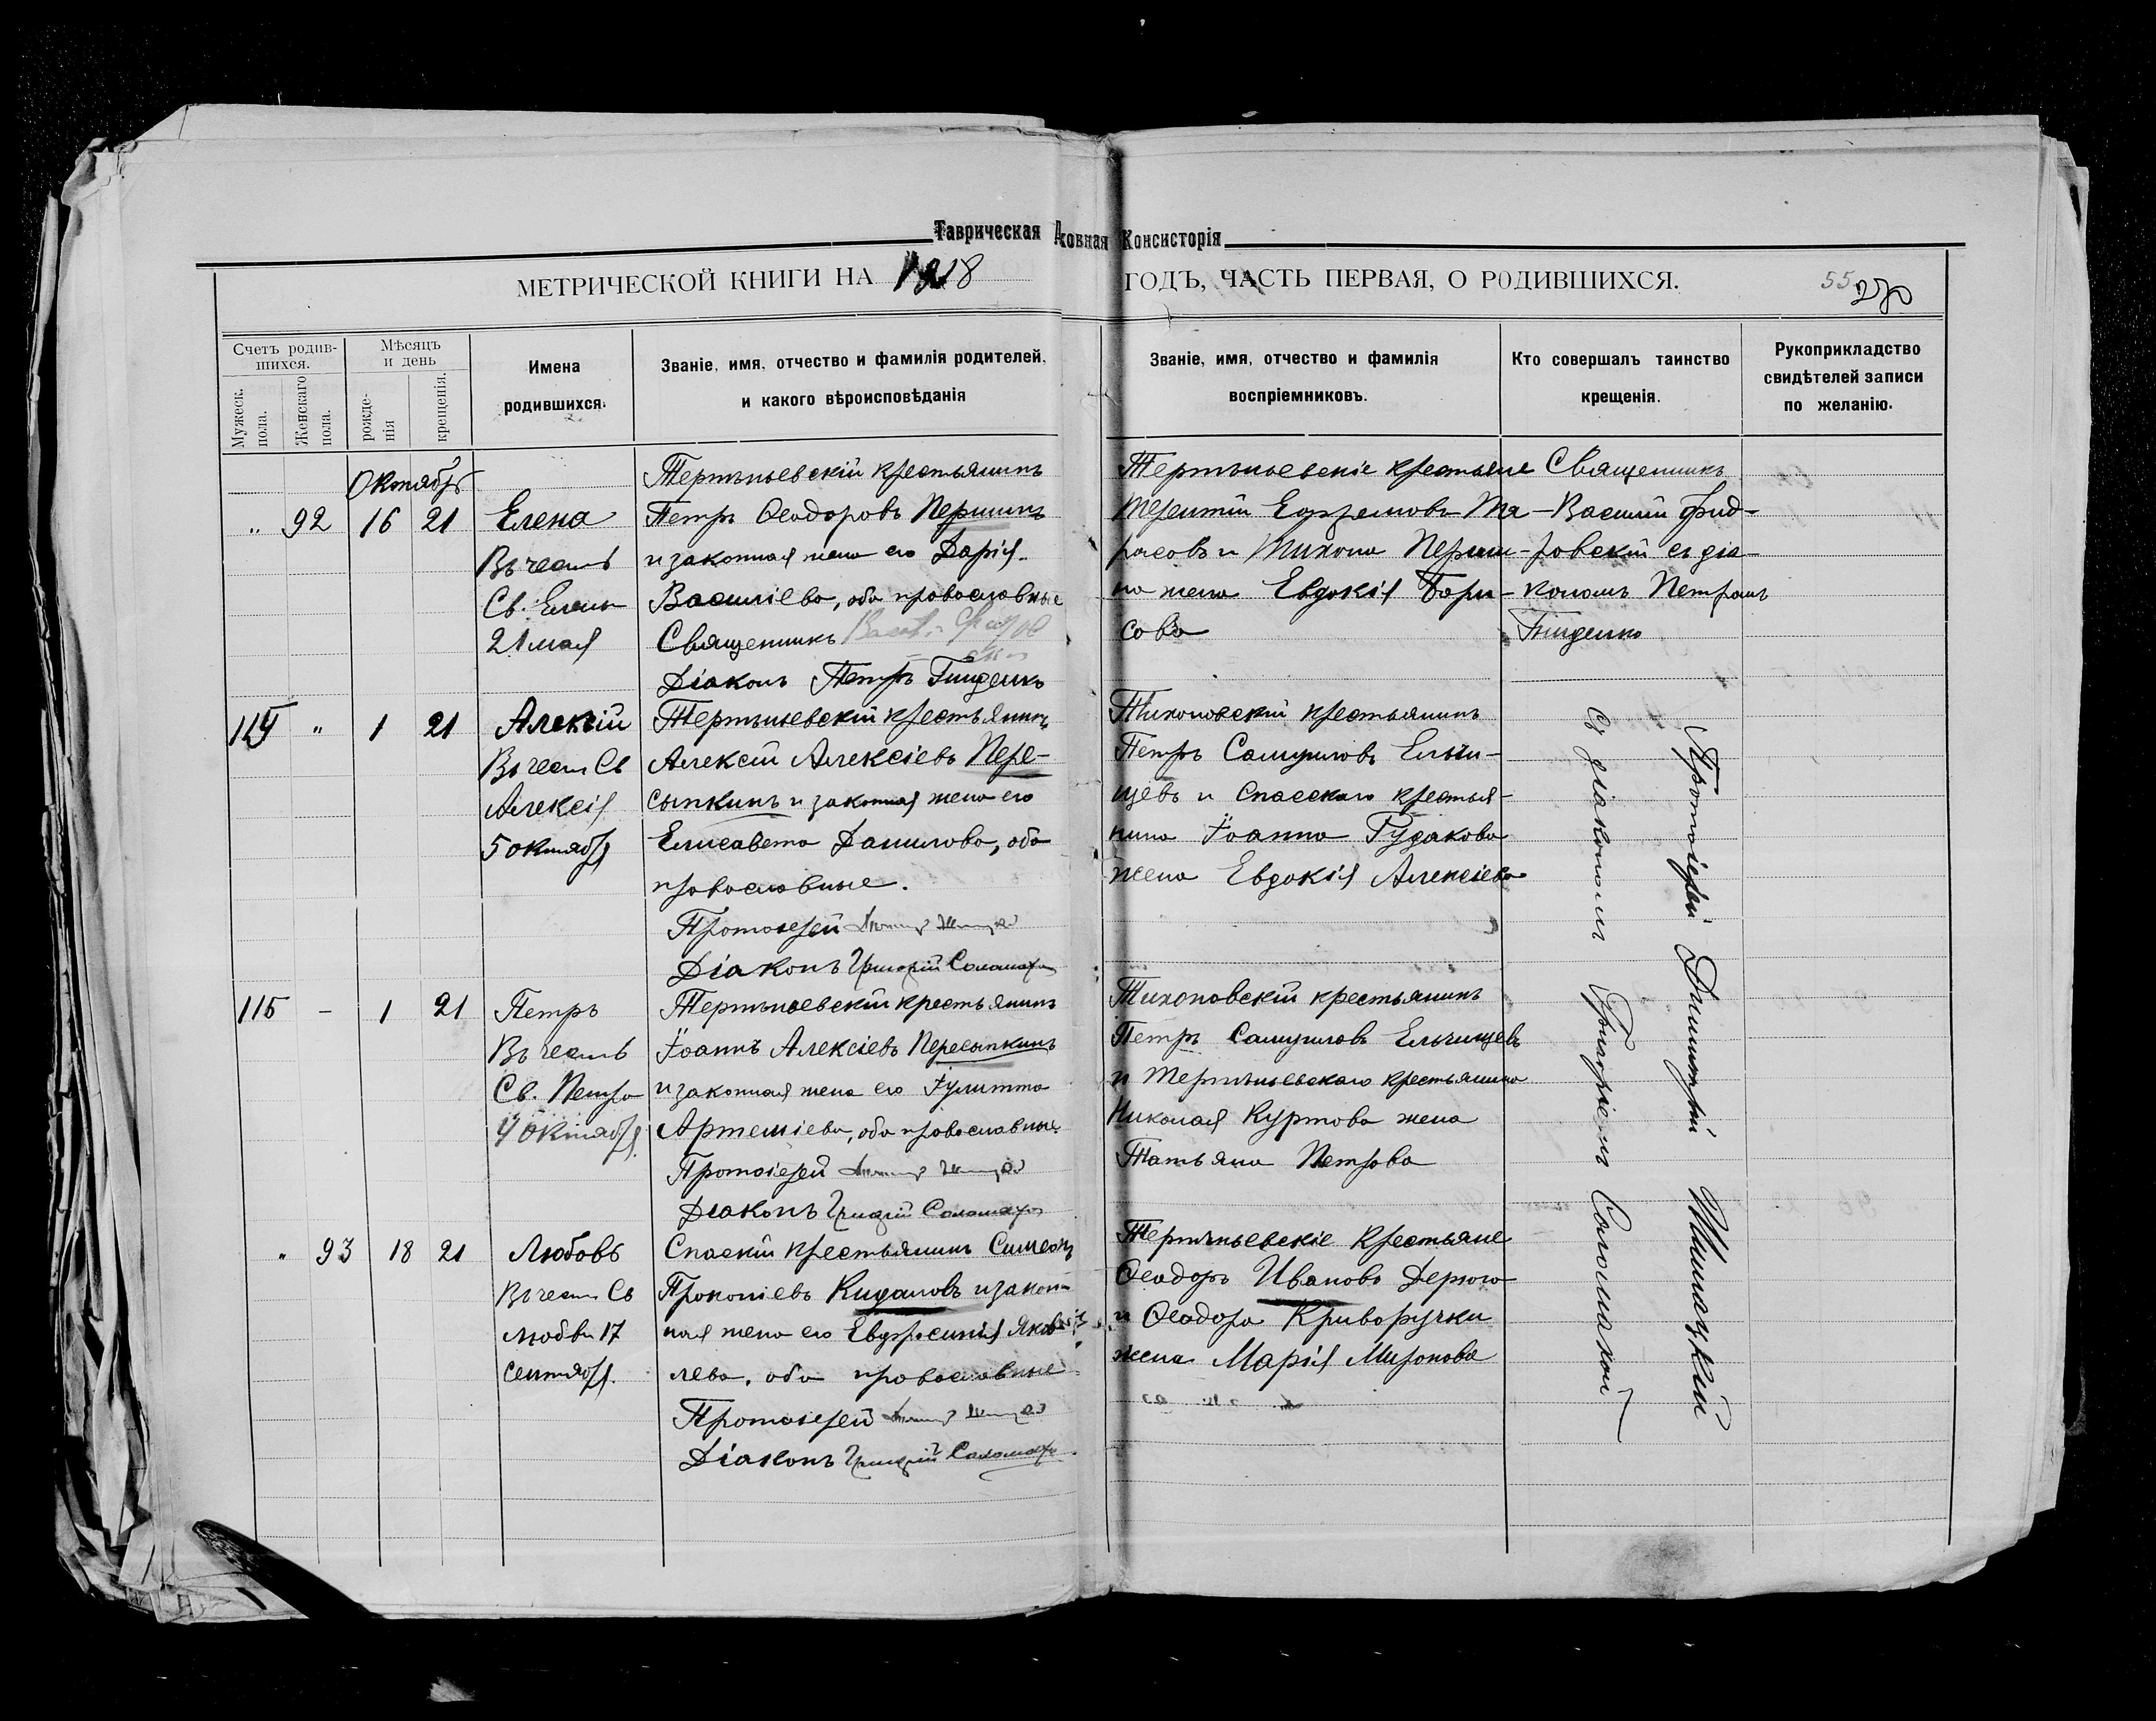 Таврическая Духовная Консисторія
МЕТРИЧЕСКОЙ КНИГИ НА 1918 ГОДЪ, ЧАСТЬ ПЕРВАЯ, О РОДИВШИХСЯ.
55
270
Счетъ родив-
шихся.
Мужеск.
пола.
Женскаго
пола.
Мѣсяцъ
и день
рожде-
нія
крещенія.
Имена
родившихся.
Званіе, имя, отчество и фамилія родителей,
и какого вѣроисповѣданія
Званіе, имя, отчество и фамилія
воспріемниковъ.
Кто совершалъ таинство
крещенія.
Рукоприкладство
свидѣтелей записи
по желанію.
Октябрь
" 92 16 21
Елена
Въ честь
Св. Елены
21 мая
Терпѣньевскій крестьянинъ
Петръ Ѳеодоровъ Першинъ
и законная жена его Дарія
Василіева, оба православные
Священникъ
Діаконъ Петръ Гнѣденко
Терпѣньевскіе крестьяне
Терентій Ефремовъ Та-
расовъ и Тихона Перши-
на жена Евдокія Бори-
сова
Священникъ
Василій Фид-
ровскій съ діа-
кономъ Петромъ
Гнѣденко
114 " 1 21
Алексій
Въ честь Св
Алексія
5 октября
Терпѣньевскій крестьянинъ
Алексій Алексіевъ Пере-
сыпкинъ и законная жена его
Елисавета Данилова, оба
православные.
Протоіерей
Діаконъ Григорій Соломаха
Тихоновскій крестьянинъ
Петръ Самуиловъ Ельчи-
щевъ и Спасскаго крестья-
нина Іоанна Рудакова
жена Евдокія Алексіева
115 - 1 21
Петръ
Въ честь
Св. Петра
4 октября
Терпѣньевскій крестьянинъ
Іоаннъ Алексіевъ Пересыпкинъ
и законная жена его Іулитта
Артеміева, оба православные
Протоіерей
Діаконъ Григорій Соломаха
Тихоновскій крестьянинъ
Петръ Самуиловъ Ельчищевъ
и Терпѣньевскаго крестьянина
Николая Куртова жена
Татьяна Петрова
" 93 18 21
Любовь
Въ честь Св
Любви 17
сентября.
Спаскій крестьянинъ Симеонъ
Прокопіевъ Кидаловъ и закон-
ная жена его Евфросинія Яков-
лева, оба православные
Протоіерей
Діаконъ Григорій Соломаха
Терпѣньевскіе крестьяне
Ѳеодоръ Ивановъ Дерюга
и Ѳеодора Криворучки
жена Марія Миронова
Протоіерей Димитрій
съ діакономъ Григоріемъ Соломахой